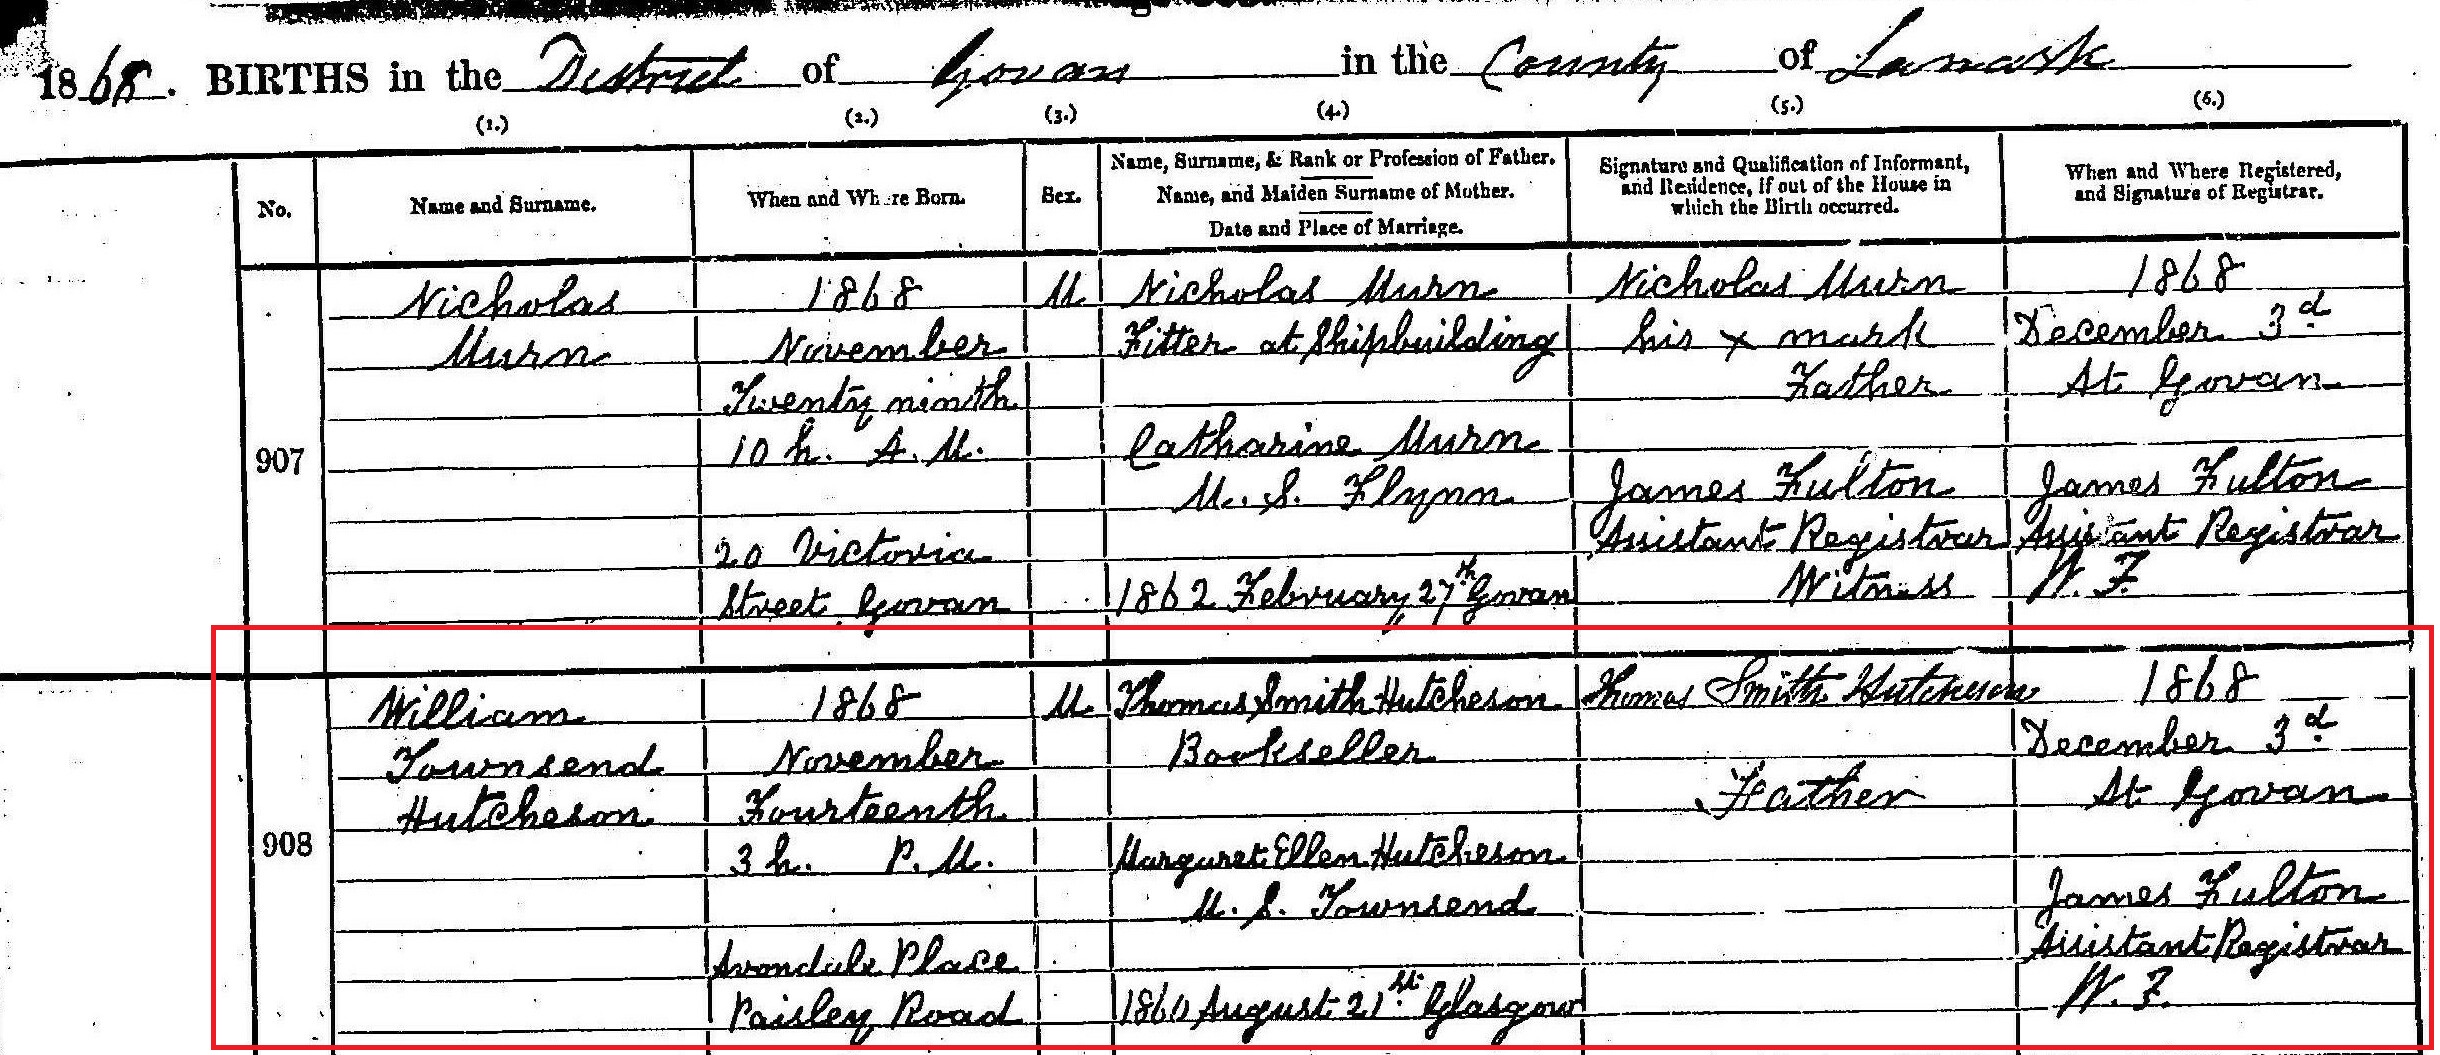 1868. BIRTHS in the District of Govan in the County of Lanark
(1.) (2.) (3.) (4.) (5.) (6.)
No.
Name and Surname.
When and Where Born.
Sex.
Name, Surname, & Rank or Profession of Father.
Name, and Maiden Surname of Mother.
Date and Place of Marriage.
Signature and Qualification of Informant,
and Residence, if out of the House in
which the Birth occurred.
When and Where Registered,
and Signature of Registrar.
907
Nicholas
Murn
1868
November
Twenty ninth
10 h. A. M.
20 Victoria
Street Govan
M.
Nicholas Murn
Fitter at Shipbuilding
Catharine Murn
M. S. Flynn
1862 February 27th Govan
Nicholas Murn
his x mark
Father
James Fulton
Assistant Registrar
Witness
1868
December 3d
At Govan
James Fulton
Assistant Registrar
W. F.
908
William
Townsend
Hutcheson
1868
November
Fourteenth
3 h. P. M.
Avondale Place
Paisley Road
M.
Thomas Smith Hutcheson
Bookseller
Margaret Ellen Hutcheson
M. S. Townsend
1860 August 21st Glasgow
Thomas Smith Hutcheson
Father
1868
December 3d
At Govan
James Fulton
Assistant Registrar
W. F.